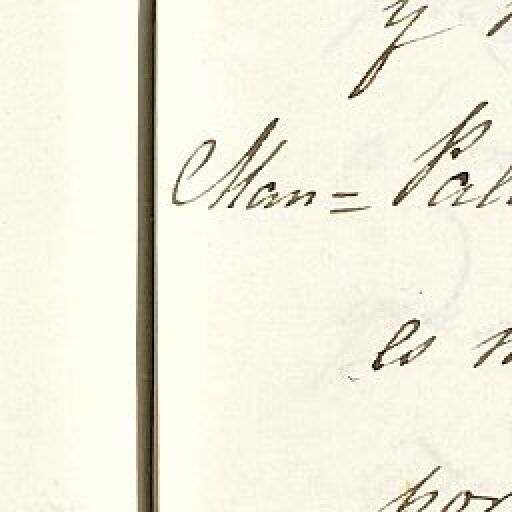 y
Man= Pal
es
por